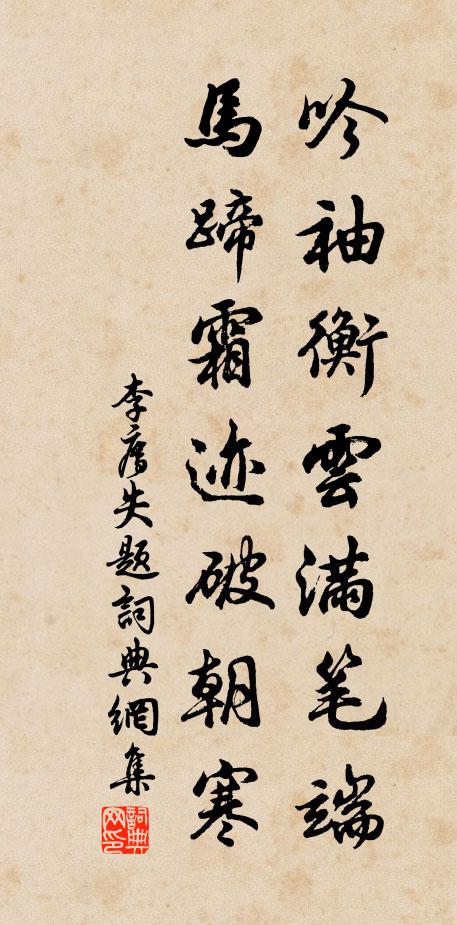 吟袖衡雲满笔端
馬蹄霜迹破朝寒
李失题詞典網集
詞典网印